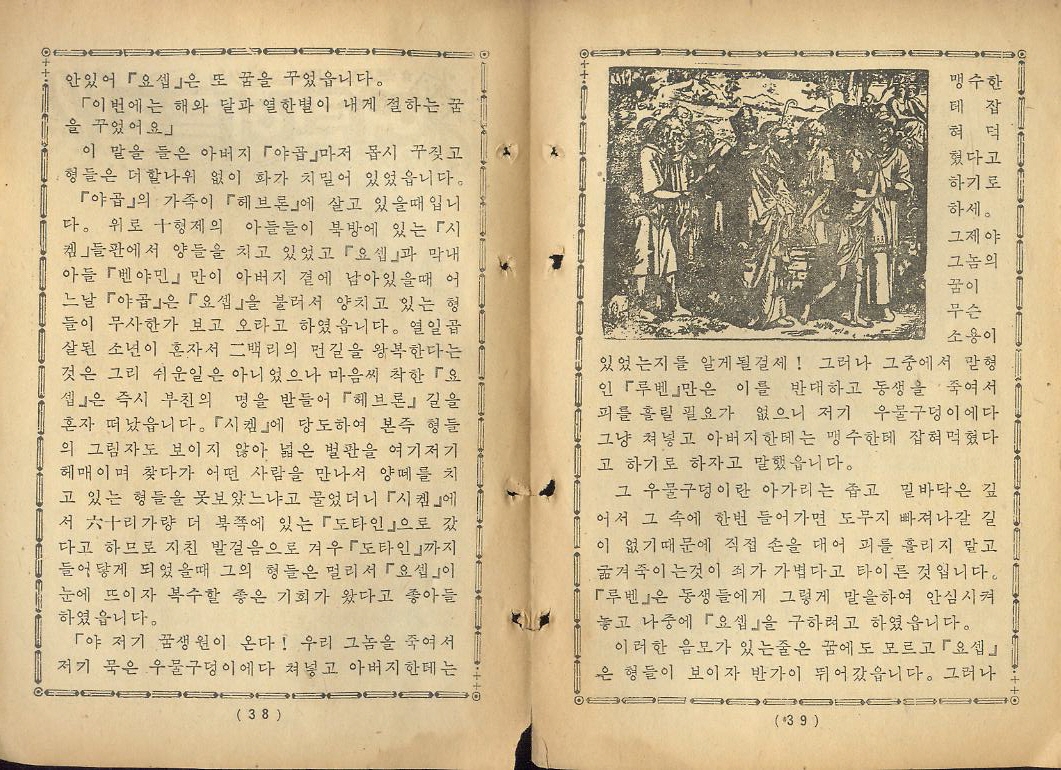 안있어 『요셉』은 또 꿈을 꾸었읍니다。
「이번에는 해와 달과 열한별이 내게 절하는 꿈
을 꾸었어요」
이 말을 들은 아버지 『야곱』마저 몹시 꾸짖고
형들은 더할나위 없이 화가 치밀어 있었읍니다。
『야곱』의 가족이 『헤브론』에 살고 있을때입니
다。 위로 十형제의 아들들이 북방에 있는 『시
켐』들판에서 양들을 치고 있었고 『요셉』과 막내
아들 『벤야민』 만이 아버지 곁에 남아있을때 어
느날 『야곱』은 『요셉』을 불러서 양치고 있는 형
들이 무사한가 보고 오라고 하였읍니다。 열일곱
살된 소년이 혼자서 二백리의 먼길을 왕복한다는
것은 그리 쉬운일은 아니었으나 마음씨 착한 『요
셉』은 즉시 부친의 명을 받들어 『헤브론』 길을
혼자 떠났읍니다。『시켐』에 당도하여 본즉 형들
의 그림자도 보이지 않아 넓은 벌판을 여기저기
헤매이며 찾다가 어떤 사람을 만나서 양떼를 치
고 있는 형들을 못보았느냐고 물었더니 『시켐』에
서 六十리가량 더 북쪽에 있는 『도타인』으로 갔
다고 하므로 지친 발걸음으로 겨우 『도타인』까지
들어닿게 되었을때 그의 형들은 멀리서 『요셉』이
눈에 뜨이자 복수할 좋은 기회가 왔다고 좋아들
하였읍니다。
「야 저기 꿈생원이 온다! 우리 그놈을 죽여서
저기 묵은 우물구덩이에다 쳐넣고 아버지한테는
(38)
맹수한
테 잡
혀 먹
혔다고
하기로
하세。
그제야
그놈의
꿈이
무슨
소용이
있었는지를 알게될걸세! 그러나 그중에서 맏형
인 『루벤』만은 이를 반대하고 동생을 죽여서
피를 흘릴 필요가 없으니 저기 우물구덩이에다
그냥 쳐넣고 아버지한테는 맹수한테 잡혀먹혔다
고 하기로 하자고 말했읍니다。
그 우물구덩이란 아가리는 좁고 밑바닥은 깊
어서 그 속에 한번 들어가면 도무지 빠져나갈 길
이 없기때문에 직접 손을 대어 피를 흘리지 말고
굶겨죽이는것이 죄가 가볍다고 타이른 것입니다。
『루벤』은 동생들에게 그렇게 말을하여 안심시켜
놓고 나중에 『요셉』을 구하려고 하였읍니다。
이러한 음모가 있는줄은 꿈에도 모르고 『요셉』
은 형들이 보이자 반가이 뛰어갔읍니다。 그러나
(39)